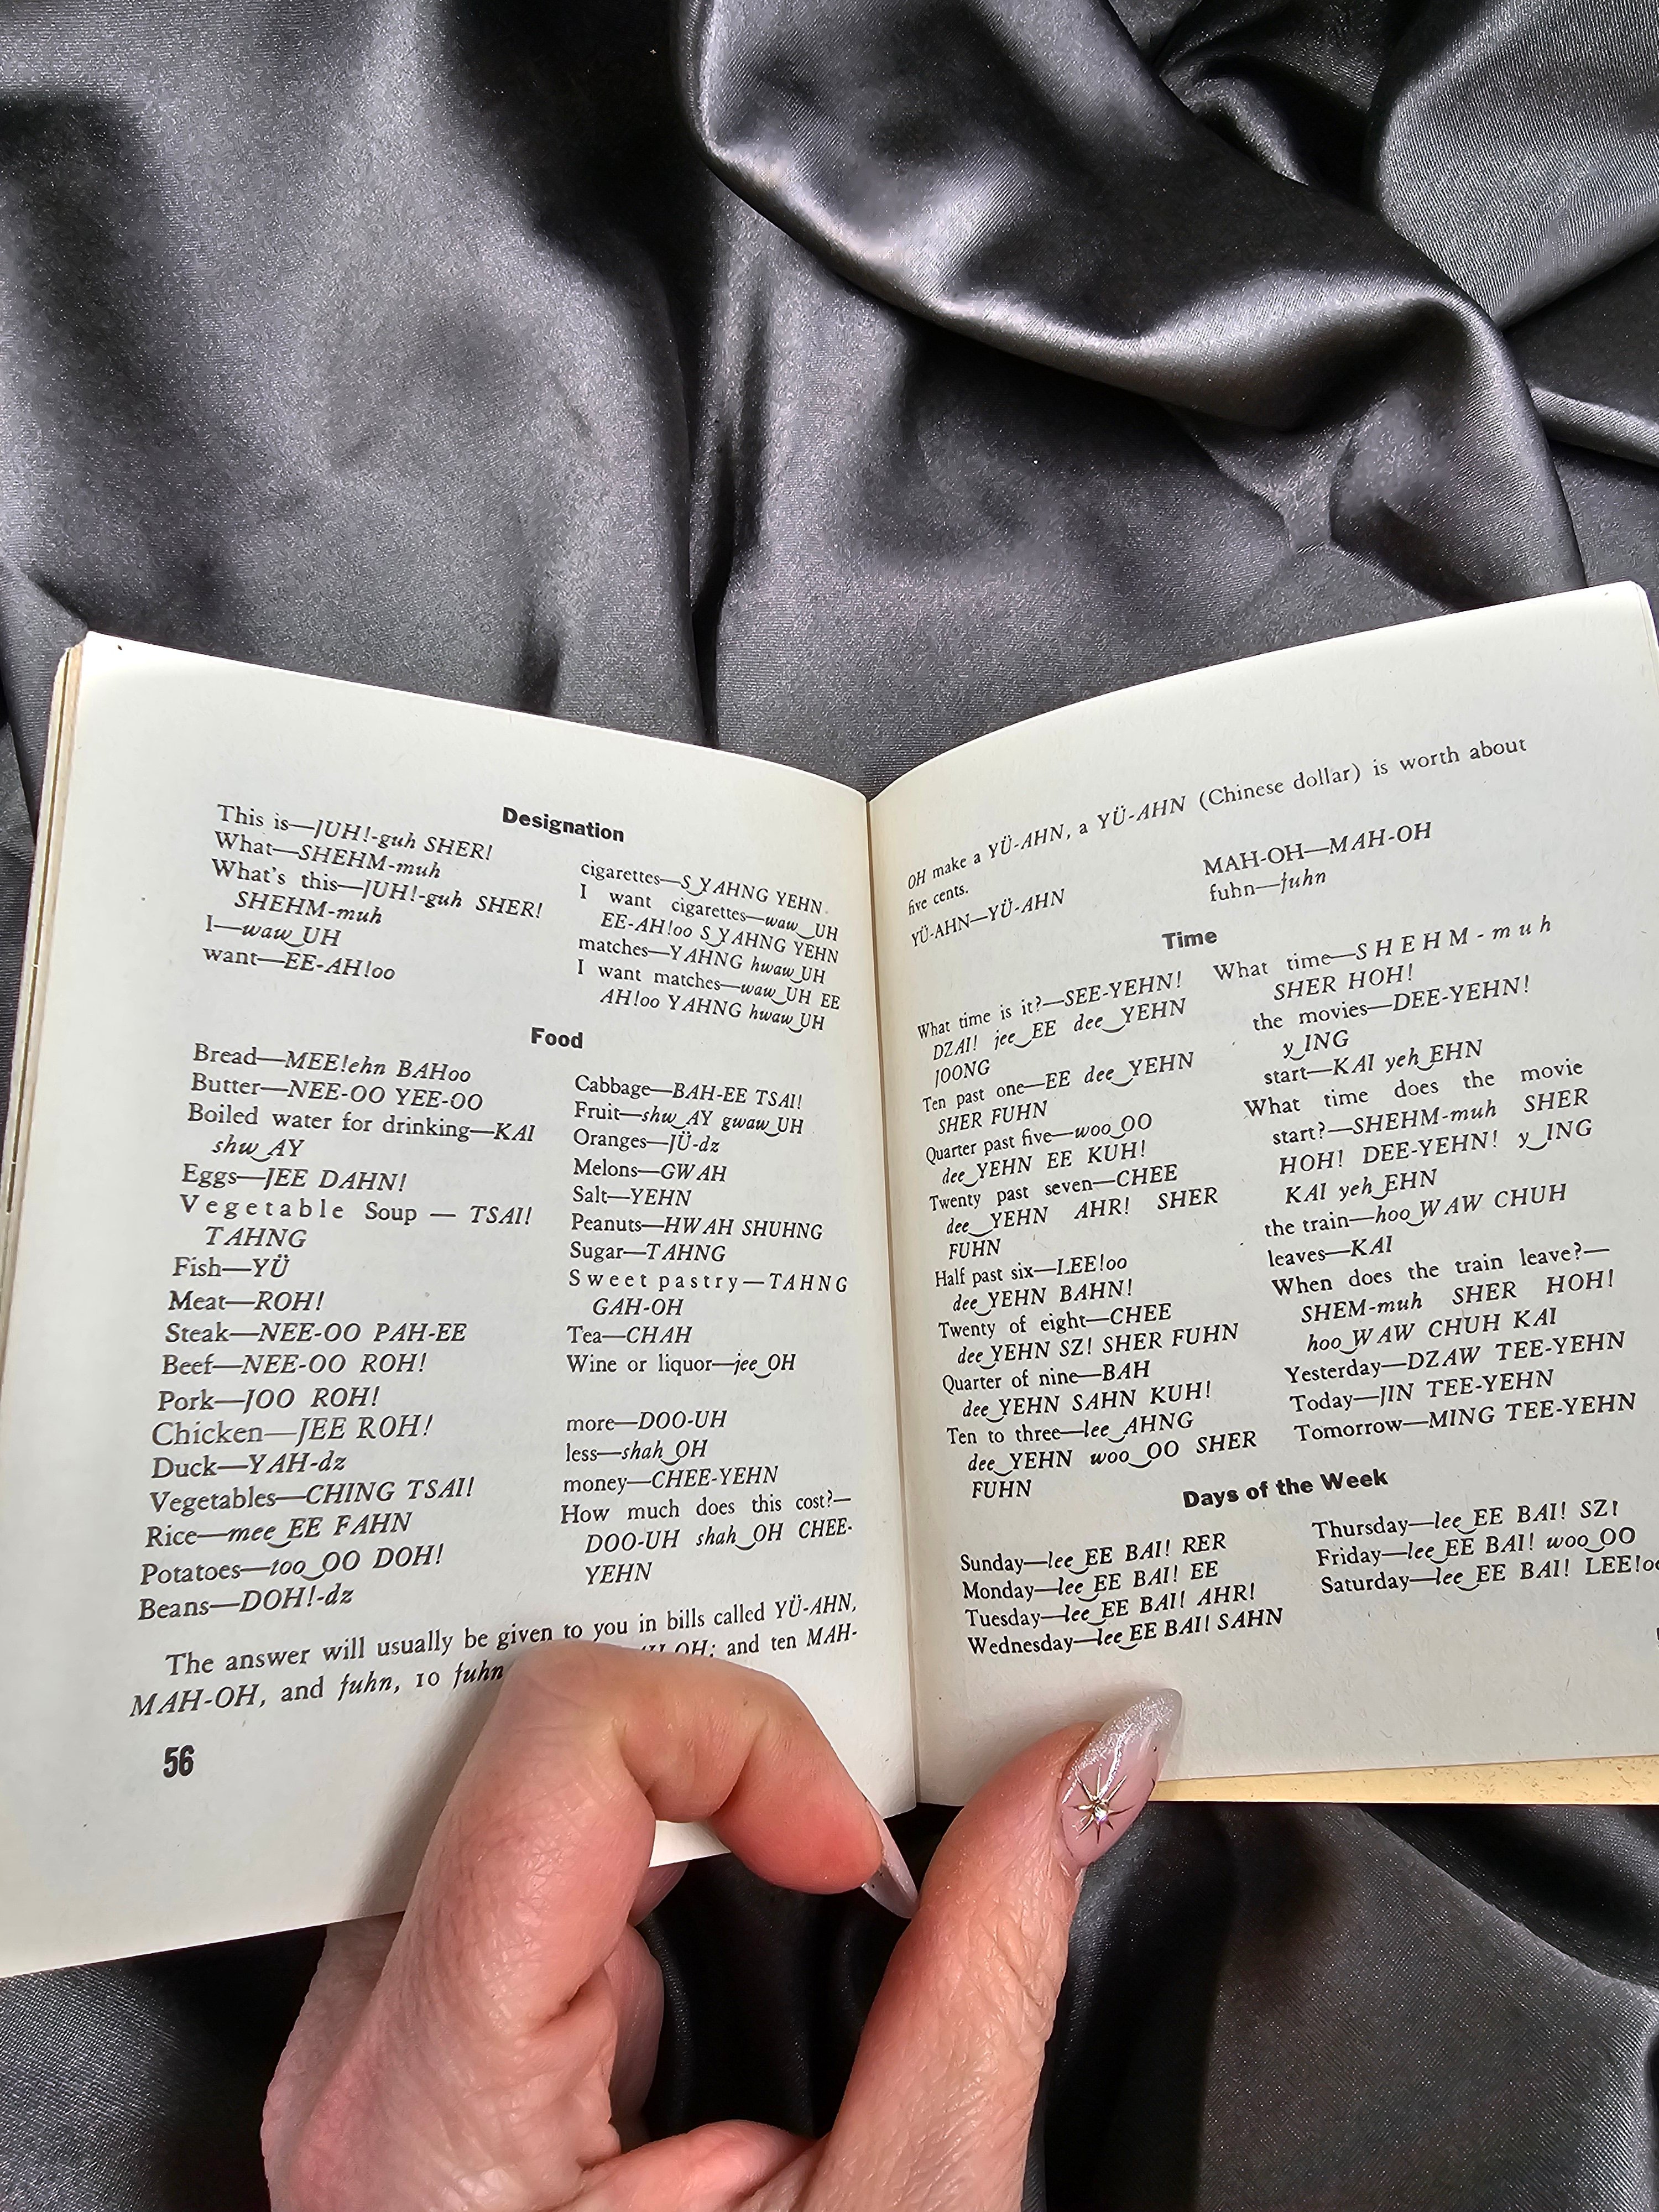 Designation
This is—JUH!-guh SHER!
What—SHEHM-muh
What's this—JUH!-guh SHER!
SHEHM-muh
I—waw‿UH
want—EE-AH!oo
cigarettes—S‿YAHNG YEHN
I want cigarettes—waw‿UH
EE-AH!oo S‿YAHNG YEHN
matches—YAHNG hwaw‿UH
I want matches—waw‿UH EE
AH!oo YAHNG hwaw‿UH
Food
Bread—MEE!ehn BAHoo
Butter—NEE-OO YEE-OO
Boiled water for drinking—KAI
shw‿AY
Eggs—JEE DAHN!
Vegetable Soup — TSAI!
TAHNG
Fish—YÜ
Meat—ROH!
Steak—NEE-OO PAH-EE
Beef—NEE-OO ROH!
Pork—JOO ROH!
Chicken—JEE ROH!
Duck—YAH-dz
Vegetables—CHING TSAI!
Rice—mee‿EE FAHN
Potatoes—too‿OO DOH!
Beans—DOH!-dz
Cabbage—BAH-EE TSAI!
Fruit—shw‿AY gwaw‿UH
Oranges—JÜ-dz
Melons—GWAH
Salt—YEHN
Peanuts—HWAH SHUHNG
Sugar—TAHNG
Sweet pastry—TAHNG
GAH-OH
Tea—CHAH
Wine or liquor—jee‿OH
more—DOO-UH
less—shah‿OH
money—CHEE-YEHN
How much does this cost?—
DOO-UH shah‿OH CHEE-
YEHN
The answer will usually be given to you in bills called YÜ-AHN,
MAH-OH, and fuhn, 10 fuhn OH; and ten MAH-
56
OH make a YÜ-AHN, a YÜ-AHN (Chinese dollar) is worth about
five cents.
YÜ-AHN—YÜ-AHN
MAH-OH—MAH-OH
fuhn—fuhn
Time
What time is it?—SEE-YEHN!
DZAI! jee‿EE dee‿YEHN
JOONG
Ten past one—EE dee‿YEHN
SHER FUHN
Quarter past five—woo‿OO
dee‿YEHN EE KUH!
Twenty past seven—CHEE
dee‿YEHN AHR! SHER
FUHN
Half past six—LEE!oo
dee‿YEHN BAHN!
Twenty of eight—CHEE
dee‿YEHN SZ! SHER FUHN
Quarter of nine—BAH
dee‿YEHN SAHN KUH!
Ten to three—lee‿AHNG
dee‿YEHN woo‿OO SHER
FUHN
What time—SHEHM-muh
SHER HOH!
the movies—DEE-YEHN!
y‿ING
start—KAI yeh‿EHN
What time does the movie
start?—SHEHM-muh SHER
HOH! DEE-YEHN! y‿ING
KAI yeh‿EHN
the train—hoo‿WAW CHUH
leaves—KAI
When does the train leave?—
SHEM-muh SHER HOH!
hoo‿WAW CHUH KAI
Yesterday—DZAW TEE-YEHN
Today—JIN TEE-YEHN
Tomorrow—MING TEE-YEHN
Days of the Week
Sunday—lee‿EE BAI! RER
Monday—lee‿EE BAI! EE
Tuesday—lee‿EE BAI! AHR!
Wednesday—lee‿EE BAI! SAHN
Thursday—lee‿EE BAI! SZ!
Friday—lee‿EE BAI! woo‿OO
Saturday—lee‿EE BAI! LEE!oo